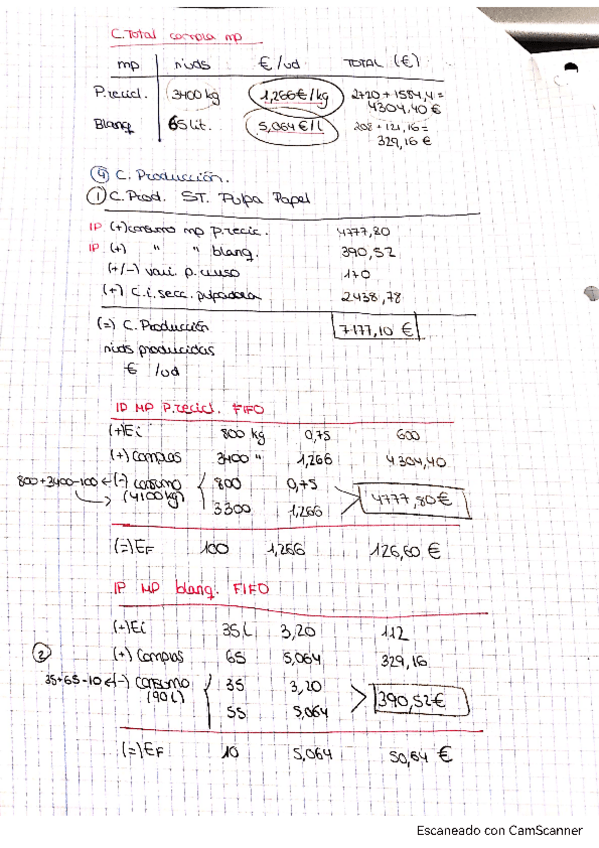 C.Total compra mp
mp nuds €/ud TOTAL (€)
P.recicl. 3400 kg 1,266€/kg 2720 + 1584,4 =
4304,40 €
Blanq 65 lit. 5,064 €/l 208 + 121,16 =
329,16 €
④ C. Producción.
① C.Prod. ST. Pulpa Papel
IP (+) consumo mp p.recic. 4777,80
IP (+) " " blanq. 390,52
(+/-) vari. p. curso 170
(+) C.i. secc. pulpadora 2438,78
(=) C. Producción 7177,10 €
nuds producidas
€ /ud
IP MP P.recicl. FIFO
(+) Ei 800 kg 0,75 600
(+) Compras 3400 " 1,266 4304,40
800+3400-100 ← (-) consumo 800 0,75 4777,80€
(4100kg) 3300 1,266
(=) EF 100 1,266 126,60 €
IP MP blanq. FIFO
(+) Ei 35L 3,20 112
② (+) Compras 65 5,064 329,16
35+65-10 ← (-) consumo 35 3,20 390,52€
(90L) 55 5,064
(=) EF 10 5,064 50,64 €
Escaneado con CamScanner